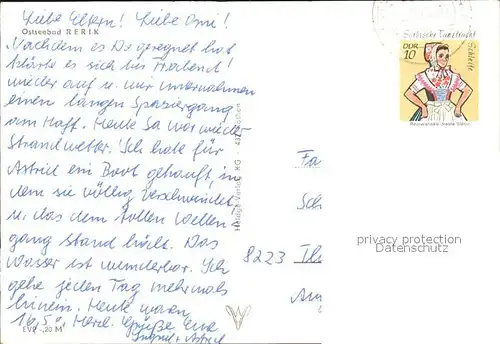 Liebe Eltern! Liebe Omi!
Ostseebad RERIK
Nachdem es Do geregnet hat
klärte es sich bis Abend
wieder auf u. wir unternahmen
einen langen Spaziergang
am Haff. Heute Sa war wieder
Strandwetter. Ich habe für
Astrid ein Boot gekauft, in
dem sie völlig verschwindet.
u. das dem tollen Wellen
gang stand hält. Das
Wasser ist wunderbar. Ich
gehe jeden Tag mehrmals
hinein. Heute waren
16,5°. Herzl. Grüße Eure
Ingrid + Astrid
EVP -,20 M
Verlag KG
Sorbische Tanztracht
Schleife
DDR
10
Fa
8223
privacy protection
Datenschutz